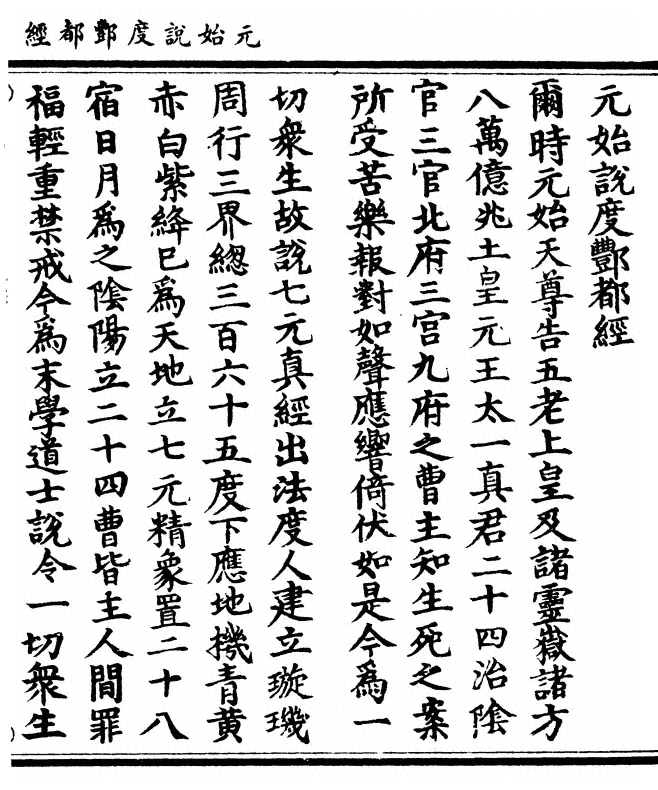 元始說度酆都經
元始說度酆都經
爾時元始天尊告五老上皇及諸靈嶽諸方
八萬億兆土皇元王太一真君二十四治陰
官三官北府三宫九府之曹主知生死之案
所受苦樂報對如聲應響倚伏如是今爲一
切衆生故說七元真經出法度人建立璇璣
周行三界緫三百六十五度下應地機青黄
赤白紫絳巳爲天地立七元精象置二十八
宿日月爲之陰陽立二十四曹皆主人間罪
福輕重禁戒今爲末學道士說令一切衆生